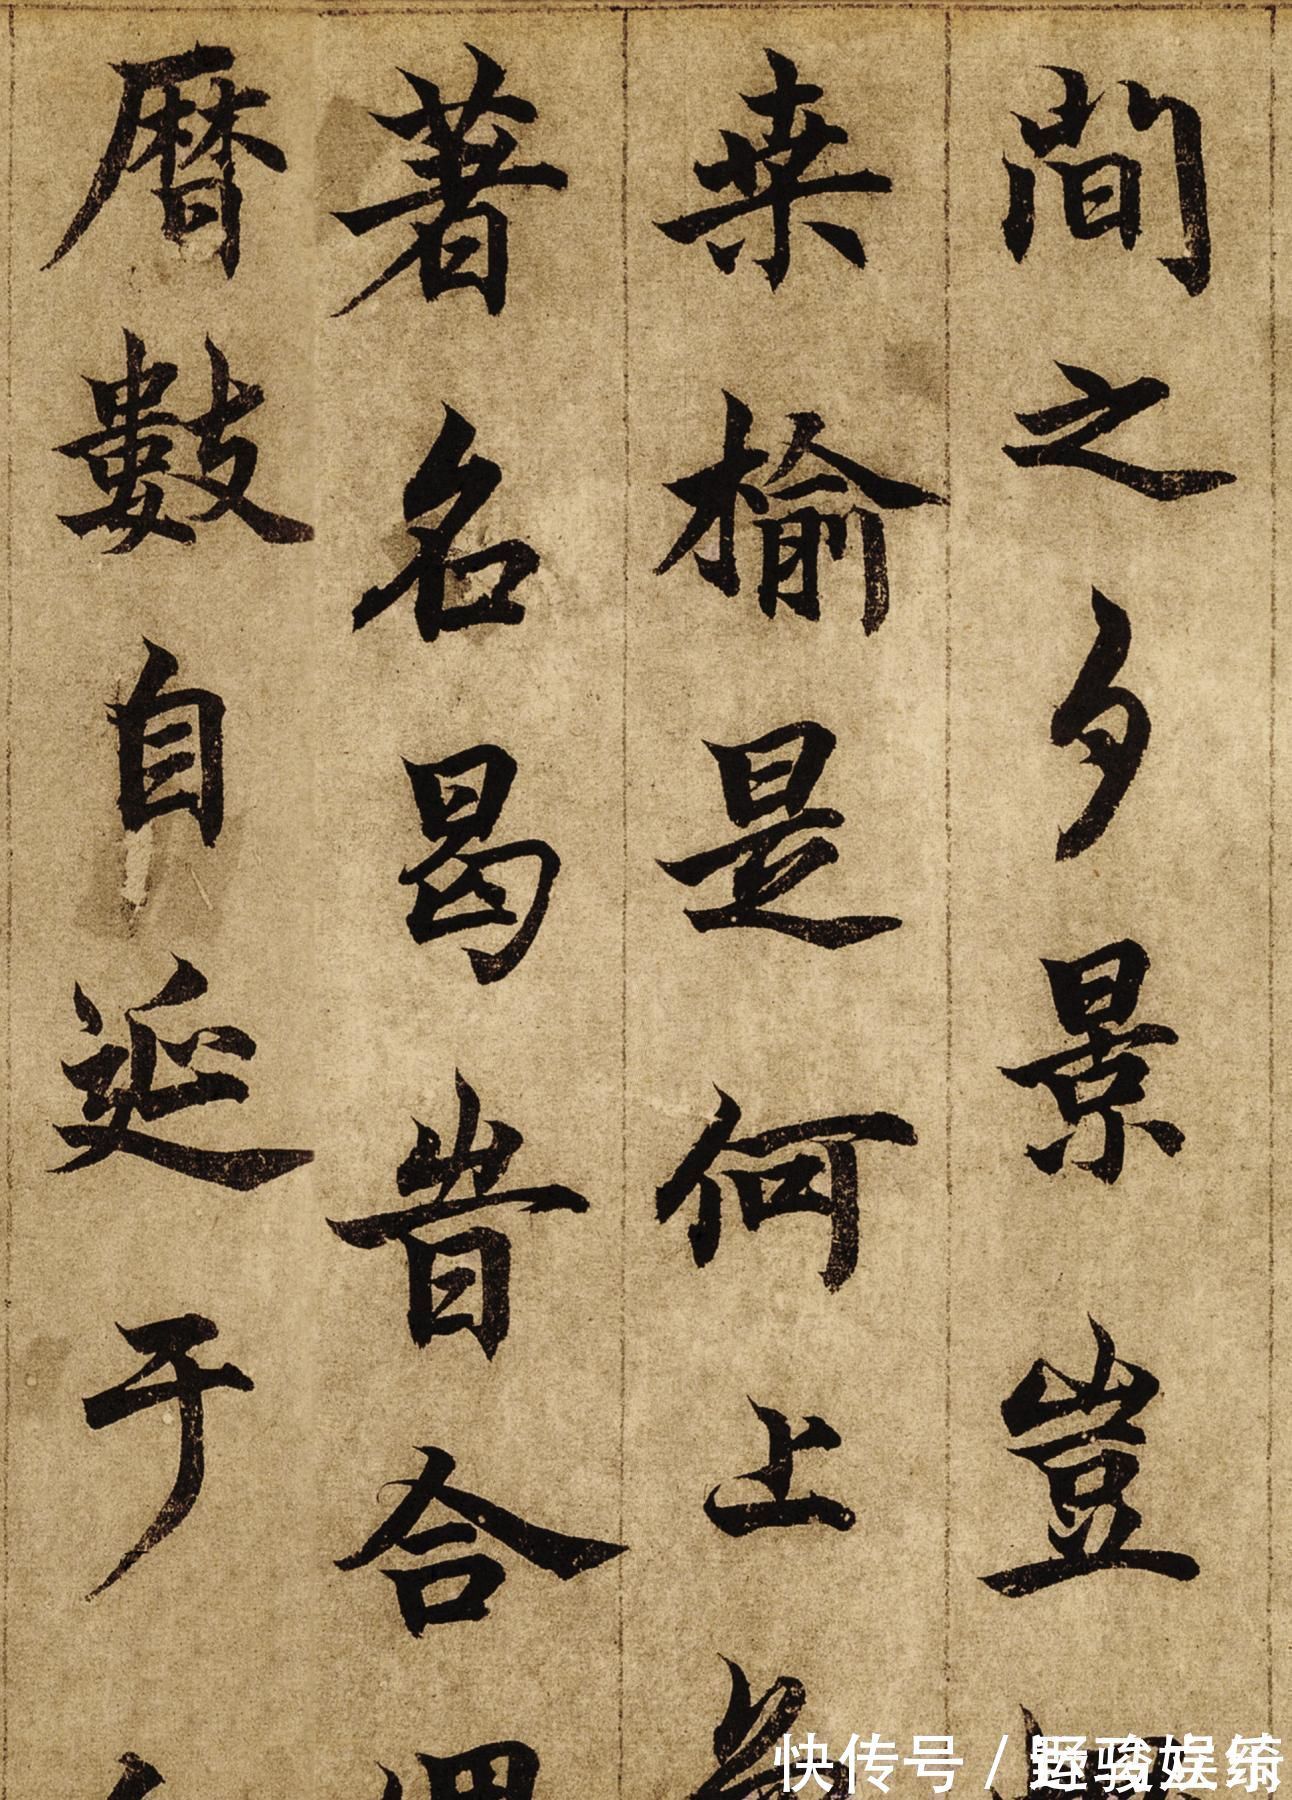 間之夕景豈
桒榆是何上
著名曷旹合
曆數自延于
快传号 /